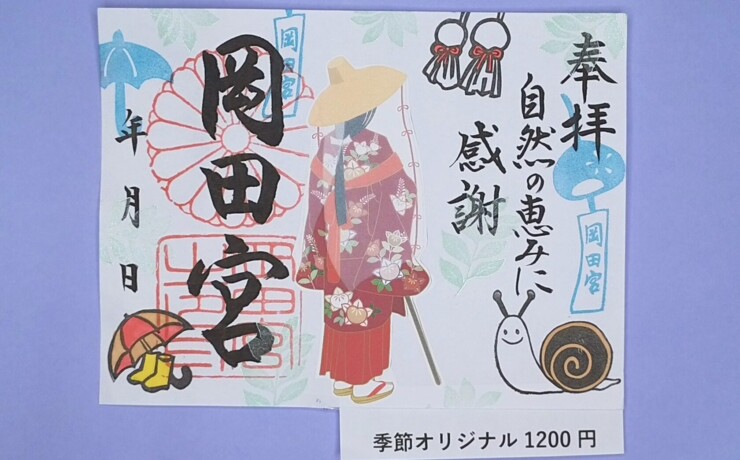 奉拝
自然の恵みに
感謝
岡田宮
岡田宮
岡田宮
年月日
季節オリジナル1200円